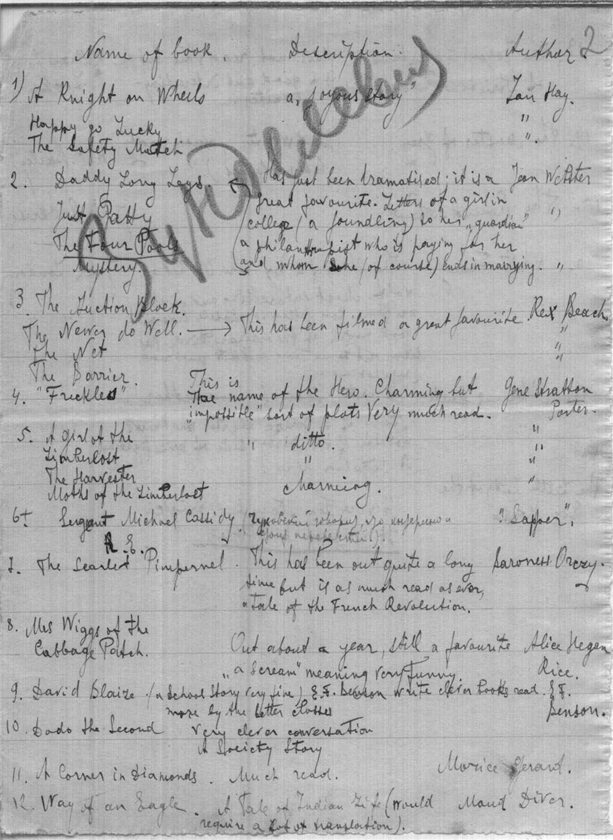 2
Name of book. Description. Author
1) A Knight on Wheels "a joyous story" Ian Hay.
Happy go Lucky "
The Safety Match "
2. Daddy Long Legs Has just been dramatised; it is a Jean Webster
Just Patty great favourite. Letters of a girl in "
The Four Pools college (a foundling) to her "guardian"
Mystery a philanthropist who is paying for her
and whom she (of course) ends in marrying. "
3. The Auction Block. Rex Beach
The Newer do Well. → This has been filmed a great favourite "
The Net "
The Barrier.
4. "Freckles" This is the name of the Hero. Charming but Gene Stratton
"impossible" sort of plots Very much read. Porter.
5. A girl of the " ditto. "
Limberlost " "
The Harvester
Moths of the Limberlost Charming. "
6+ Sergeant Michael Cassidy "Sapper".
R.E.
7. The Scarlet Pimpernel. This has been out quite a long Baroness Orczy.
time but is as much read as ever,
"Tale of the French Revolution.
8. Mrs Wiggs of the
Cabbage Patch. Out about a year, still a favourite Alice Hegen
"a scream" meaning very funny. Rice.
9. David Blaize (a School Story very fine) E.F. Benson write clever books read E.F.
more by the better classes Benson.
10. Dodo the Second Very clever conversation
A Society Story
11. A Corner in Diamonds. Much read. Morice Gerard.
12. Way of an Eagle. A Tale of Indian Life (would Maud Diver.
require a lot of translation).